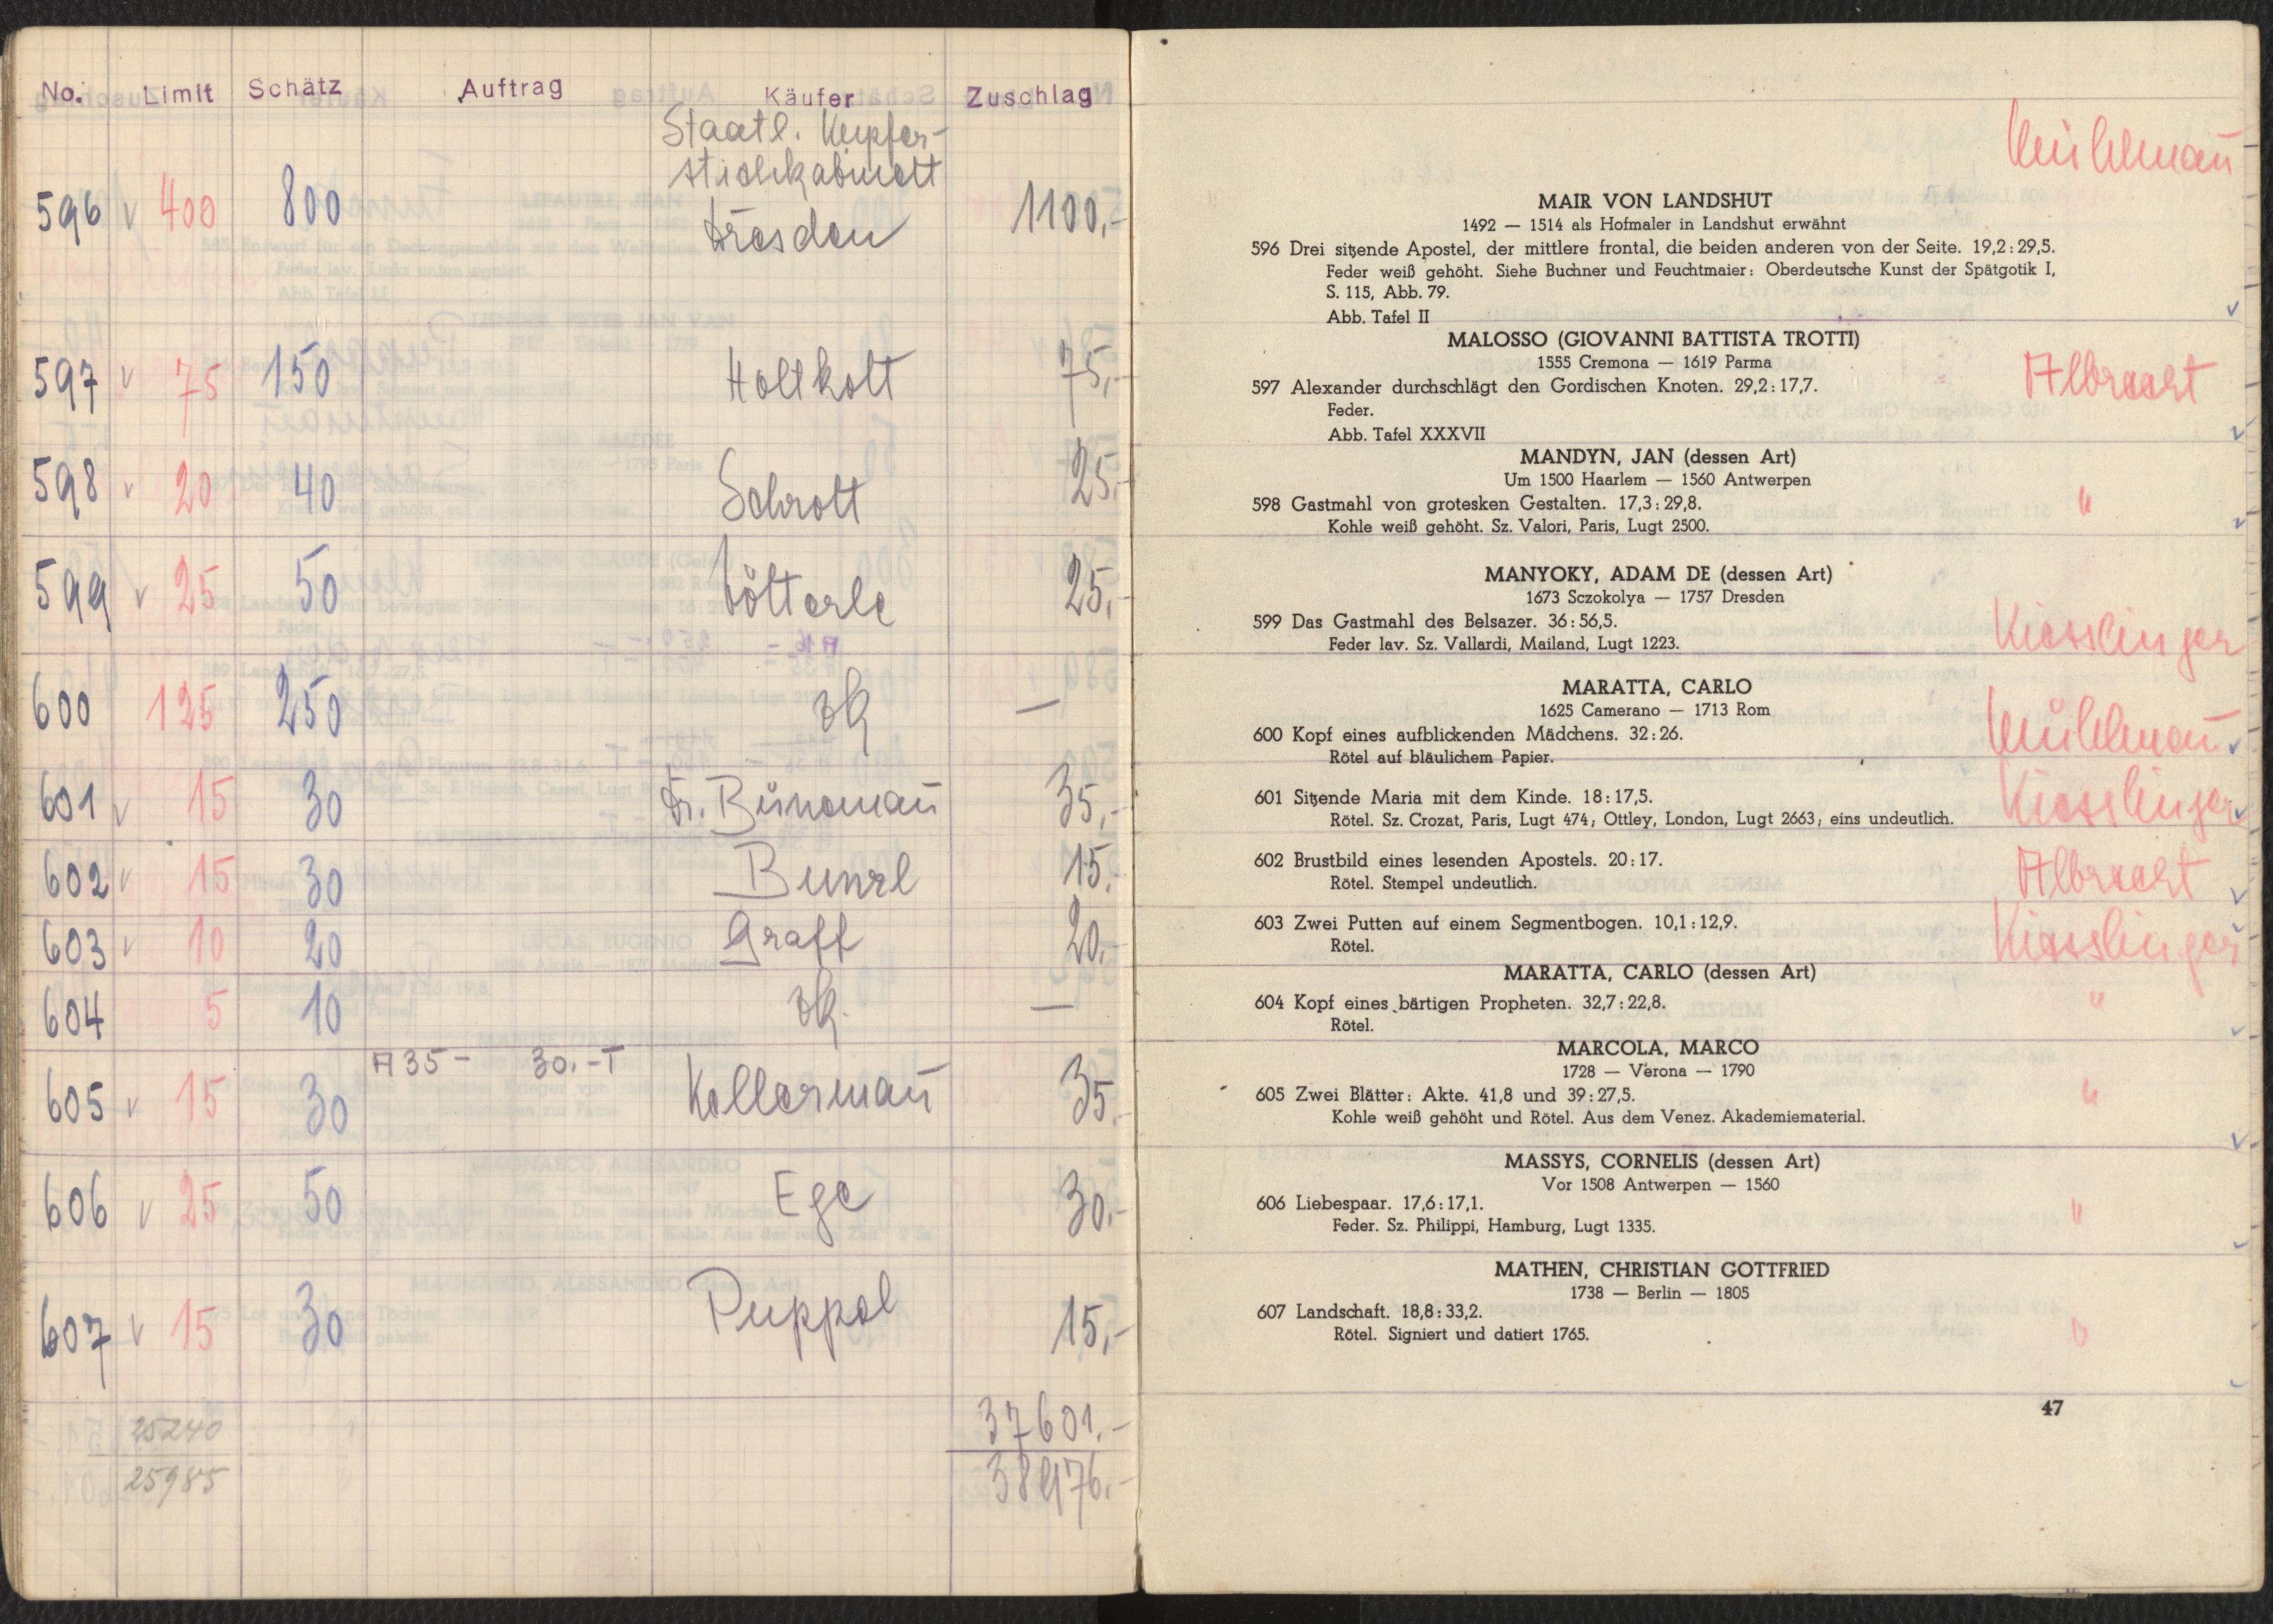 No. Limit Schätz Auftrag Käufer Zuschlag
Staatl. Kupfer-
stichkabinett
596 v 400 800 Dresden 1100,-
597 v 75 150 Holtkott 75,-
598 v 20 40 Schrott 25,-
599 v 25 50 Völterle 25,-
600 125 250 zk —
601 v 15 30 Dr. Bünemañ 35,-
602 v 15 30 Bunzl 15.-
603 v 10 20 Graff 20.-
604 5 10 zk. —
A 35 - 30.-T
605 v 15 30 Kellermañ 35.-
606 v 25 50 Ege 30.-
607 v 15 30 Puppel 15,-
25240 37601.-
25985 38976.-
Mühlmañ
MAIR VON LANDSHUT
1492 — 1514 als Hofmaler in Landshut erwähnt
596 Drei sitzende Apostel, der mittlere frontal, die beiden anderen von der Seite. 19,2 : 29,5.
Feder weiß gehöht. Siehe Buchner und Feuchtmaier: Oberdeutsche Kunst der Spätgotik I,
S. 115, Abb. 79.
Abb. Tafel II
MALOSSO (GIOVANNI BATTISTA TROTTI)
1555 Cremona — 1619 Parma
597 Alexander durchschlägt den Gordischen Knoten. 29,2 : 17,7. Albrecht
Feder.
Abb. Tafel XXXVII
MANDYN, JAN (dessen Art)
Um 1500 Haarlem — 1560 Antwerpen
598 Gastmahl von grotesken Gestalten. 17,3 : 29,8. "
Kohle weiß gehöht. Sz. Valori, Paris, Lugt 2500.
MANYOKY, ADAM DE (dessen Art)
1673 Sczokolya — 1757 Dresden
599 Das Gastmahl des Belsazer. 36 : 56,5. Kiesslinger
Feder lav. Sz. Vallardi, Mailand, Lugt 1223.
MARATTA, CARLO
1625 Camerano — 1713 Rom
600 Kopf eines aufblickenden Mädchens. 32 : 26. Mühlmañ
Rötel auf bläulichem Papier.
601 Sitzende Maria mit dem Kinde. 18 : 17,5. Kiesslinger
Rötel. Sz. Crozat, Paris, Lugt 474; Ottley, London, Lugt 2663; eins undeutlich.
602 Brustbild eines lesenden Apostels. 20 : 17. Albrecht
Rötel. Stempel undeutlich.
603 Zwei Putten auf einem Segmentbogen. 10,1 : 12,9. Kiesslinger
Rötel.
MARATTA, CARLO (dessen Art)
604 Kopf eines bärtigen Propheten. 32,7 : 22,8. "
Rötel.
MARCOLA, MARCO
1728 — Verona — 1790
605 Zwei Blätter: Akte. 41,8 und 39 : 27,5. "
Kohle weiß gehöht und Rötel. Aus dem Venez. Akademiematerial.
MASSYS, CORNELIS (dessen Art)
Vor 1508 Antwerpen — 1560
606 Liebespaar. 17,6 : 17,1. "
Feder. Sz. Philippi, Hamburg, Lugt 1335.
MATHEN, CHRISTIAN GOTTFRIED
1738 — Berlin — 1805
607 Landschaft. 18,8 : 33,2. "
Rötel. Signiert und datiert 1765.
47